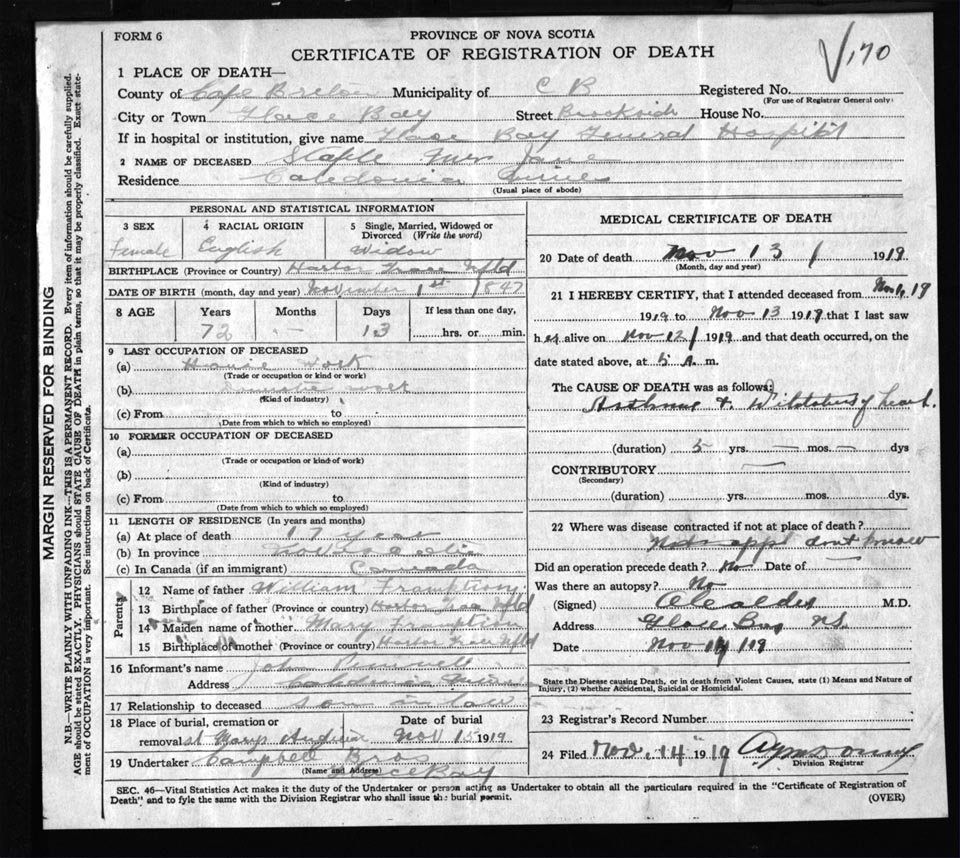 FORM 6
PROVINCE OF NOVA SCOTIA
CERTIFICATE OF REGISTRATION OF DEATH
170
1 PLACE OF DEATH—
County of Cape Breton Municipality of C B Registered No.
(For use of Registrar General only)
City or Town Glace Bay Street House No.
If in hospital or institution, give name Glace Bay General Hospital
2 NAME OF DECEASED Staple Mrs Jane
Residence Caledonia Mines
(Usual place of abode)
PERSONAL AND STATISTICAL INFORMATION
3 SEX 4 RACIAL ORIGIN 5 Single, Married, Widowed or Divorced (Write the word)
Female English Widow
BIRTHPLACE (Province or Country) Harbor Grace Nfld
DATE OF BIRTH (month, day and year) November 1st 1847
8 AGE Years Months Days If less than one day,
72 — 13 hrs. or min.
9 LAST OCCUPATION OF DECEASED
(a) House Work
(Trade or occupation or kind or work)
(b) work
(Kind of industry)
(c) From to
(Date from which to which so employed)
10 FORMER OCCUPATION OF DECEASED
(a)
(Trade or occupation or kind of work)
(b)
(Kind of industry)
(c) From to
(Date from which to which so employed)
11 LENGTH OF RESIDENCE (In years and months)
(a) At place of death 17 year
(b) In province Nova Scotia
(c) In Canada (if an immigrant) Canada
Parents
12 Name of father William Frampton
13 Birthplace of father (Province or country) Harbor Grace Nfld
14 Maiden name of mother Mary Frampton
15 Birthplace of mother (Province or country) Harbor Grace Nfld
16 Informant's name John
Address Caledonia Mines
17 Relationship to deceased son in law
18 Place of burial, cremation or Date of burial
removal st Marys Nov 15 1919
19 Undertaker Campbell Bros
(Name and Address)
Glace Bay
MEDICAL CERTIFICATE OF DEATH
20 Date of death Nov 13 / 1919
(Month, day and year)
21 I HEREBY CERTIFY, that I attended deceased from 19
1919 to Nov 13 1919 that I last saw
h er alive on Nov 12 / 1919 and that death occurred, on the
date stated above, at 5 A. m.
The CAUSE OF DEATH was as follows:
Asthma & of heart.
(duration) 5 yrs. — mos. — dys
CONTRIBUTORY —
(Secondary)
(duration) yrs. mos. dys.
22 Where was disease contracted if not at place of death?
dont know
Did an operation precede death? No Date of —
Was there an autopsy? No
(Signed) M.D.
Address Glace Bay NS.
Date Nov 14 / 19
State the Disease causing Death, or in death from Violent Causes, state (1) Means and Nature of
Injury, (2) whether Accidental, Suicidal or Homicidal.
23 Registrar's Record Number
24 Filed Nov. 14 1919
Division Registrar
SEC. 46—Vital Statistics Act makes it the duty of the Undertaker or person acting as Undertaker to obtain all the particulars required in the "Certificate of Registration of
Death" and to fyle the same with the Division Registrar who shall issue the burial permit. (OVER)
MARGIN RESERVED FOR BINDING
N.B.—WRITE PLAINLY WITH UNFADING INK—THIS IS A PERMANENT RECORD. Every item of information should be carefully supplied.
AGE should be stated EXACTLY. PHYSICIANS should STATE CAUSE OF DEATH in plain terms, so that it may be properly classified. Exact state-
ment of OCCUPATION is very important. See instructions on back of Certificate.